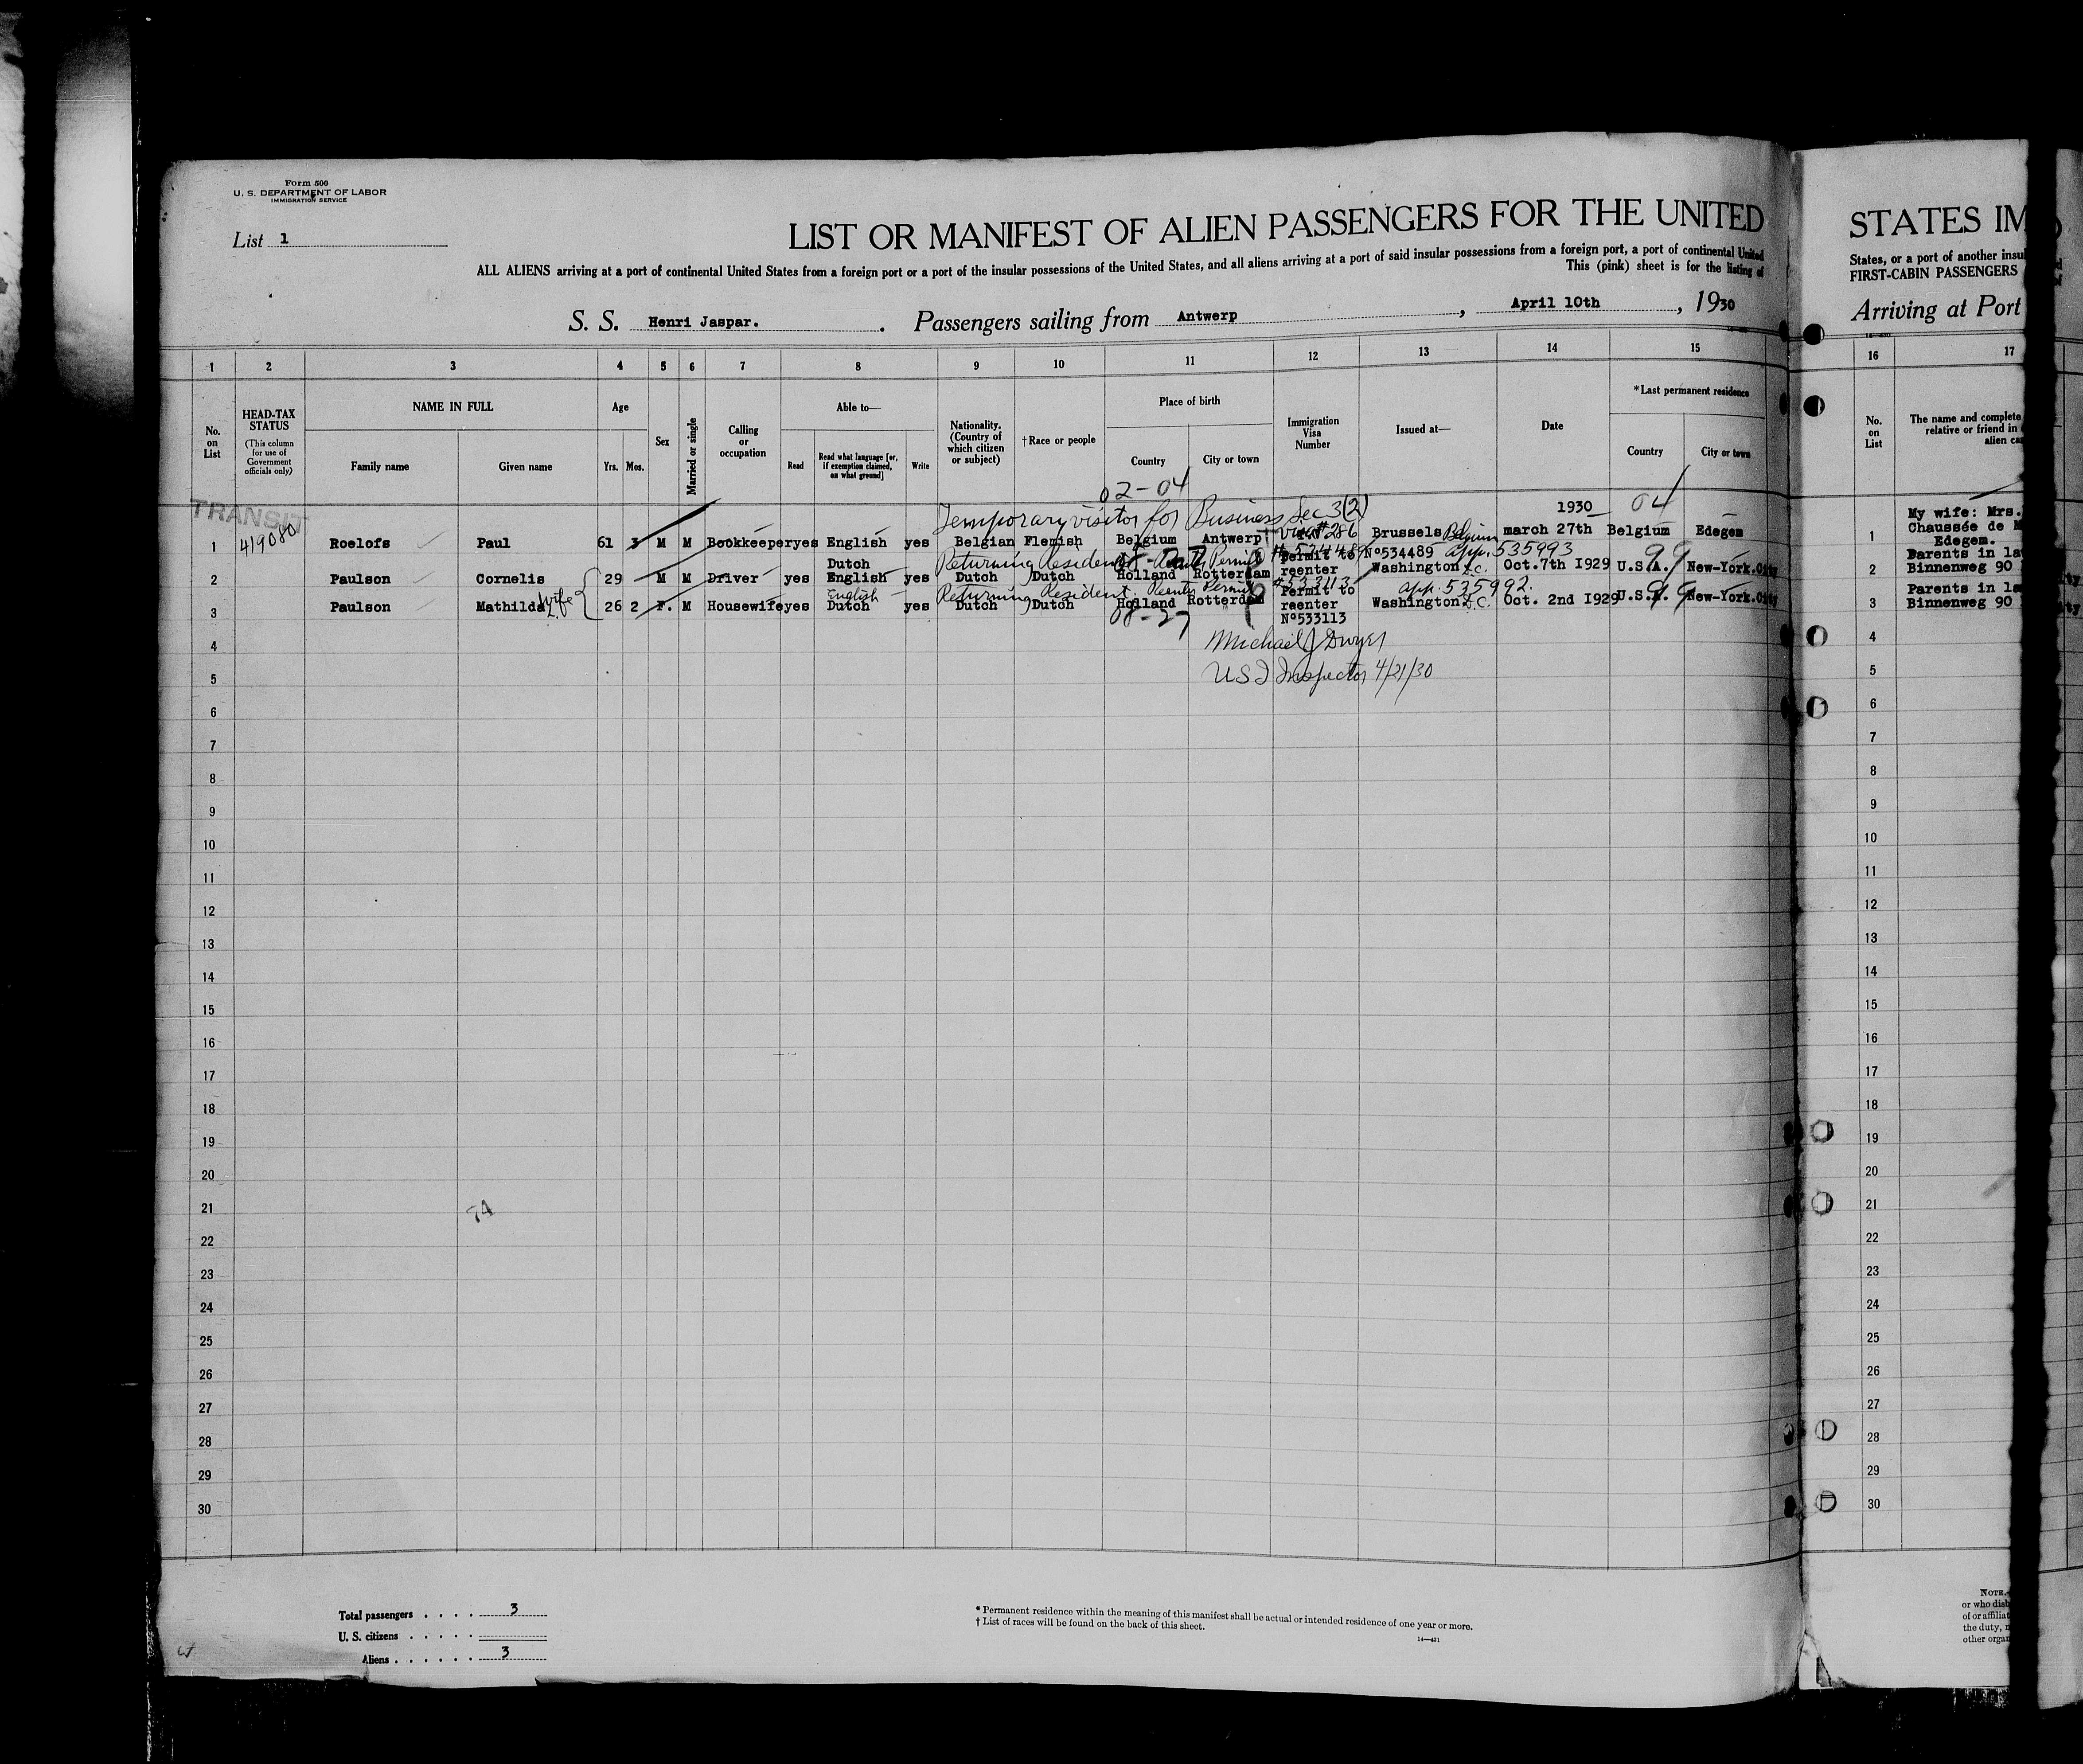 Form 500
U. S. DEPARTMENT OF LABOR
IMMIGRATION SERVICE
List 1
LIST OR MANIFEST OF ALIEN PASSENGERS FOR THE UNITED
ALL ALIENS arriving at a port of continental United States from a foreign port or a port of the insular possessions of the United States, and all aliens arriving at a port of said insular possessions from a foreign port, a port of continental United
This (pink) sheet is for the listing of
S. S. Henri Jaspar. Passengers sailing from Antwerp, April 10th, 1930
1 2 3 4 5 6 7 8 9 10 11 12 13 14 15
No. on List
HEAD-TAX STATUS
(This column for use of Government officials only)
NAME IN FULL
Family name Given name
Age
Yrs. Mos.
Sex
Married or single
Calling or occupation
Able to—
Read
Read what language [or, if exemption claimed, on what ground]
Write
Nationality. (Country of which citizen or subject)
†Race or people
Place of birth
Country City or town
Immigration Visa Number
Issued at—
Date
*Last permanent residence
Country City or town
02-04
TRANSIT
Temporary visitor for Business Sec 3(2) 1930 04
1 419080 Roelofs Paul 61 3 M M Bookkeeper yes English yes Belgian Flemish Belgium Antwerp #286 Brussels Belgium march 27th Belgium Edegem
Dutch Returning Resident Permit Permit to Nº534489 app. 535993 99
2 Paulson Cornelis 29 M M Driver yes English yes Dutch Dutch Holland Rotterdam reenter Washington D.C. Oct.7th I929 U.S.A. New-York.City
wife English Returning Resident. Reentry Permit #533113 Permit to app. 535992.
3 Paulson Mathilda 26 2 F. M Housewife yes Dutch yes Dutch Dutch Holland Rotterdam reenter Washington D.C. Oct. 2nd I929 U.S.A. New-York.City
08-27 Nº533113
4 Michael J Dwyer
5 USI Inspector 4/21/30
6
7
8
9
10
11
12
13
14
15
16
17
18
19
20
21
22
23
24
25
26
27
28
29
30
Total passengers . . . . 3
U. S. citizens . . . . .
Aliens . . . . . . 3
* Permanent residence within the meaning of this manifest shall be actual or intended residence of one year or more.
† List of races will be found on the back of this sheet.
14—421
STATES IM
States, or a port of another insul
FIRST-CABIN PASSENGERS
Arriving at Port
16 17
No. on List
The name and complete
relative or friend in
alien ca
1 My wife: Mrs.
Chaussée de M
Edegem.
2 Parents in la
Binnenweg 90
3 Parents in la
Binnenweg 90
4
5
6
7
8
9
10
11
12
13
14
15
16
17
18
19
20
21
22
23
24
25
26
27
28
29
30
NOTE.
or who disb
of or affiliat
the duty, n
other organ